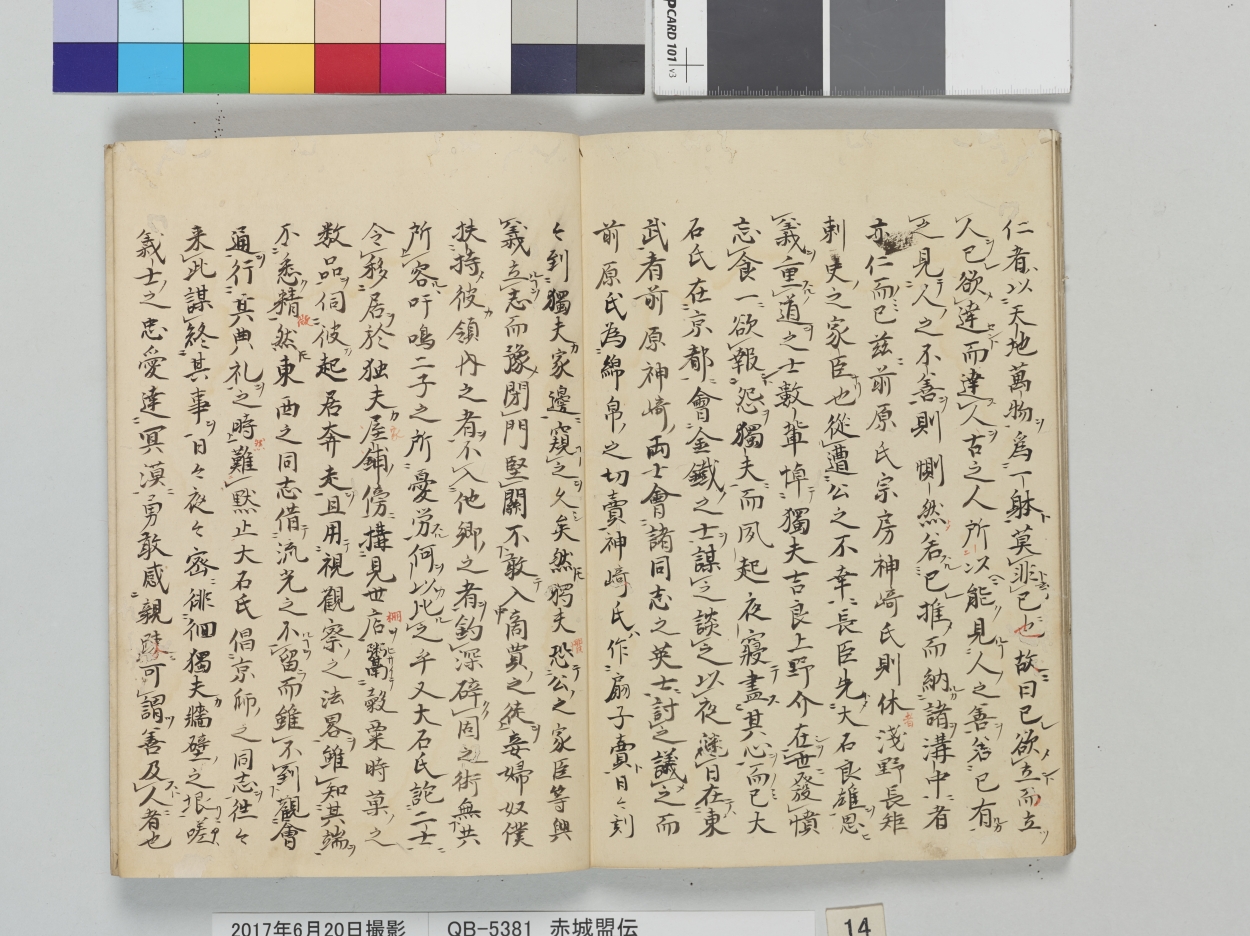 CARD 101 v3
仁者以天地萬物為一躰莫非己也故曰己欲立而立
人己欲達而達人古之人所以能見人之善若己有
之見人之不善則惻然若己推而納諸溝中者
亦仁而已茲前原氏宗房神崎氏則休淺野長矩
刺史之家臣也從遭公之不幸長臣先大石良雄思
義重道之士數輩悼獨夫吉良上野介在世發憤
忘食一欲報怨獨夫而夙起夜寢盡其心而已大
石氏在京都會金鐵之士謀之談之以夜継日在東
武者前原神崎両士會諸同志之英士討之議之而
前原氏為綿帛之切賣神崎氏作扇子賣日々刻
々到獨夫家邊窺之久矣然獨夫恐公之家臣等與
義立志而豫閉門堅關不敢入商賣之徒妾婦奴僕
扶持彼領内之者不入他鄉之者鈎深碎固之術無共
所容吁嗚二子之所憂労何以比之乎又大石氏詫二士
令移居於独夫屋鋪傍搆見世店鬻穀粟時菓之
数品伺彼起居奔走且用視觀察之法畧雖知其端
不悉精然東西之同志借流光之不留而雖不到觀會
通行其典礼之時難黙止大石氏倡京師之同志徃々
来此謀終其事日々夜々密徘徊獨夫牆壁之垠嗟
義士之忠愛達冥漠勇敢感親踈可謂善及人者也
2017年6月20日撮影
QB-5381 赤城盟伝
14